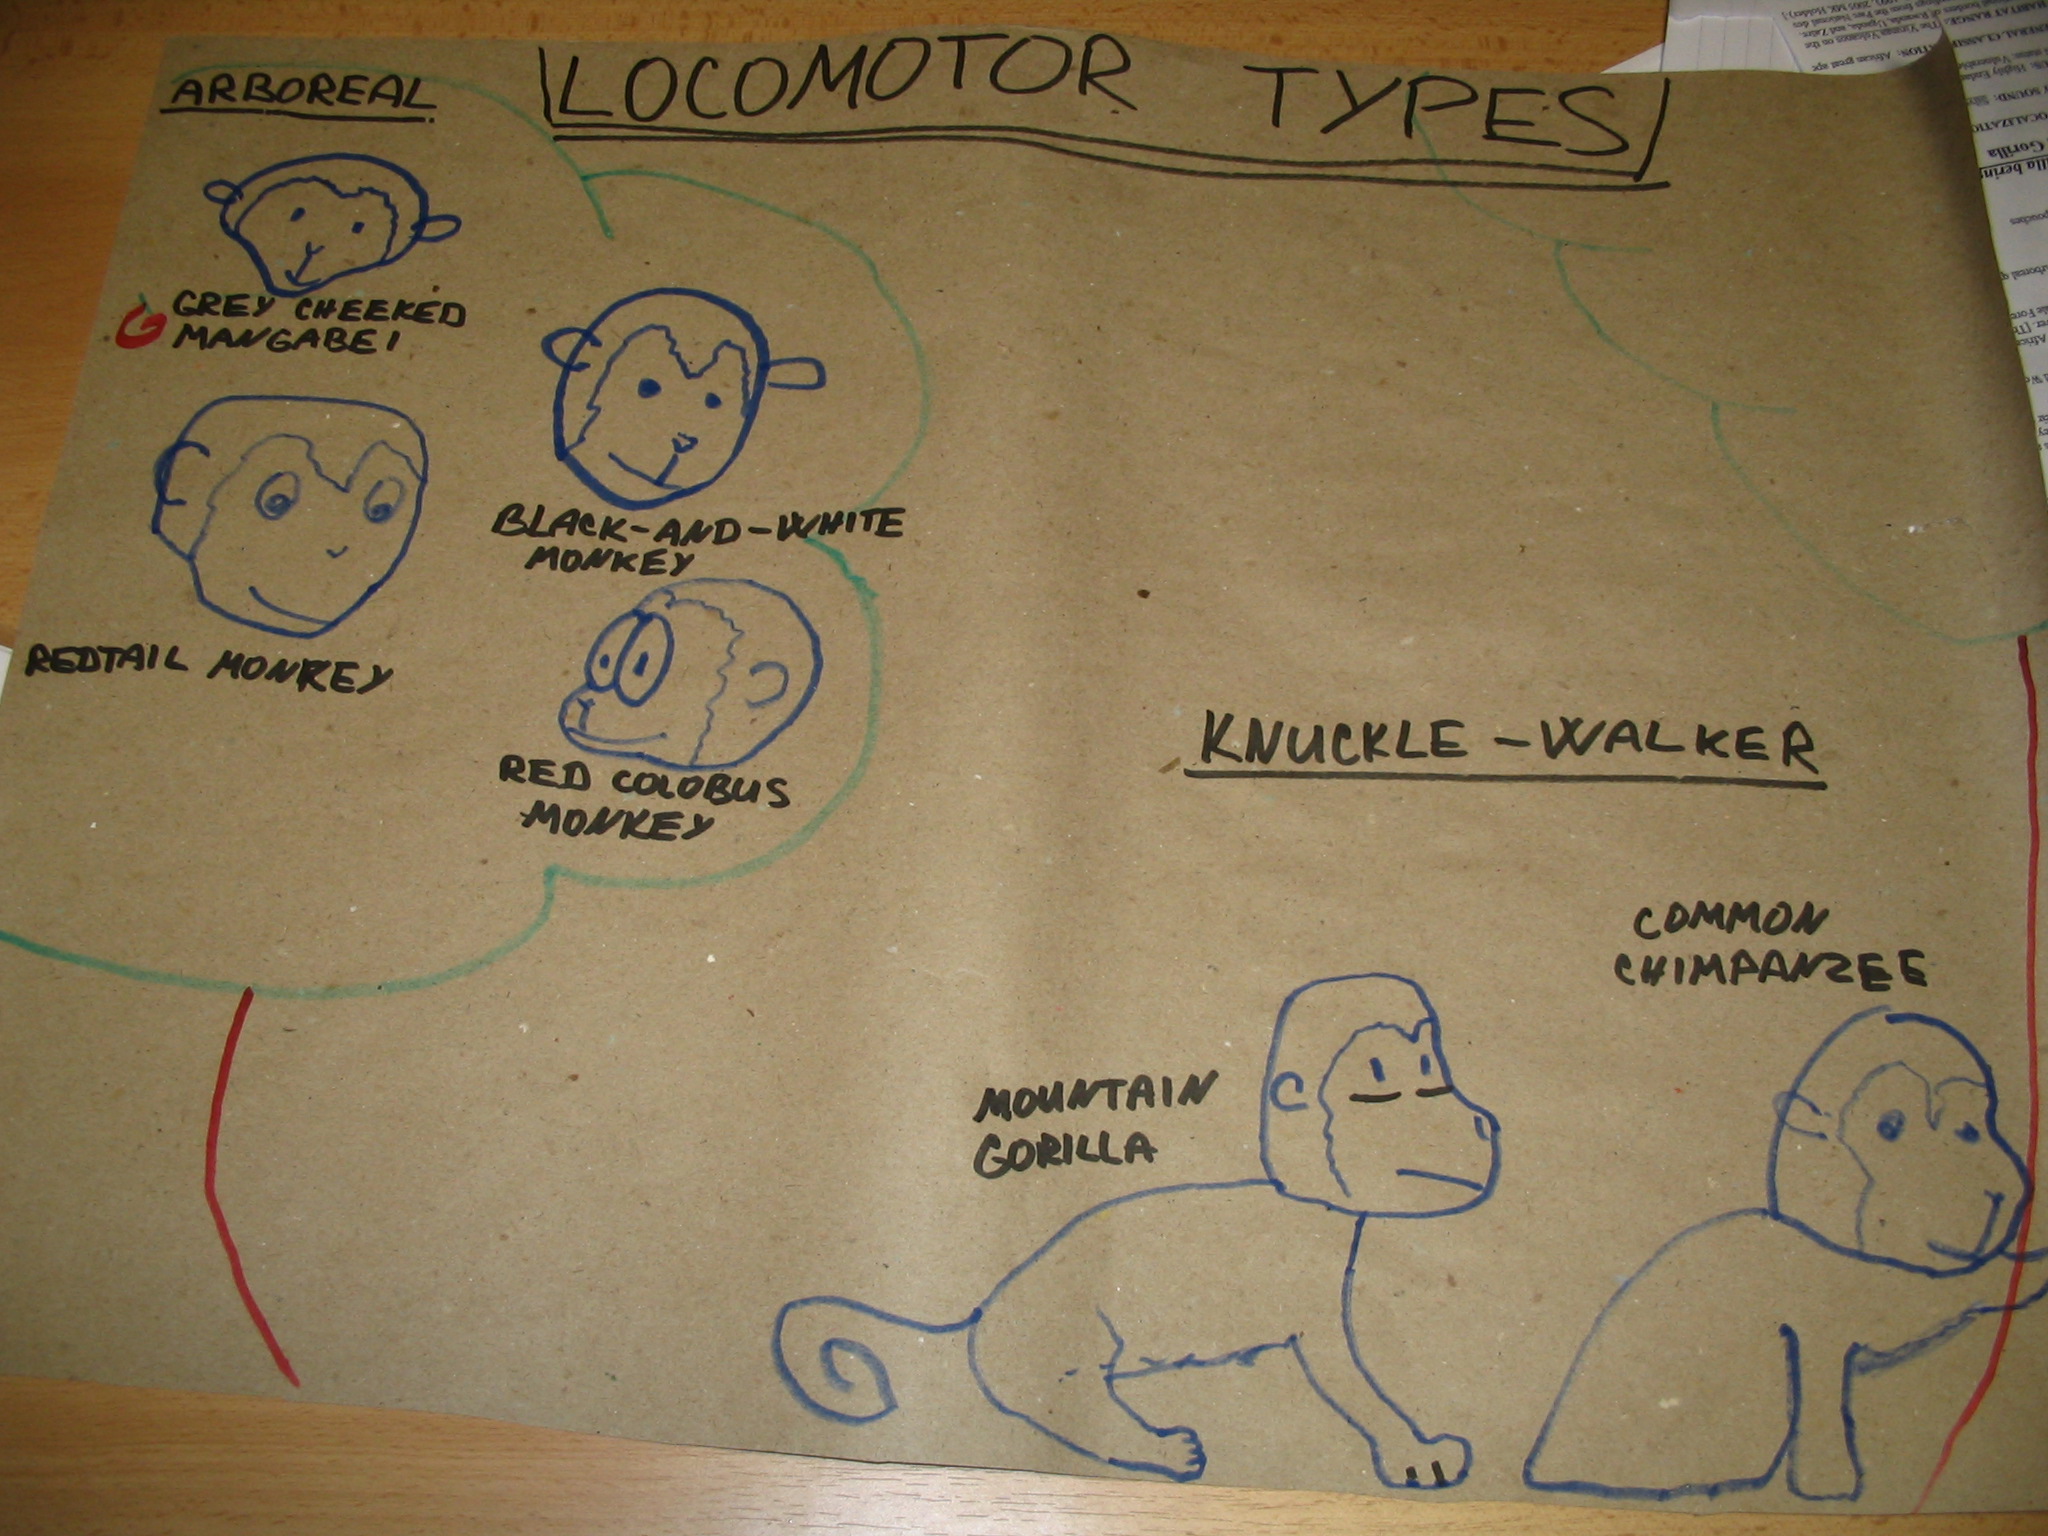 LOCOMOTOR TYPES
ARBOREAL
GREY CHEEKED
MANGABEI
BLACK-AND-WHITE
MONKEY
REDTAIL MONKEY
RED COLOBUS
MONKEY
KNUCKLE-WALKER
COMMON
CHIMPANZEE
MOUNTAIN
GORILLA